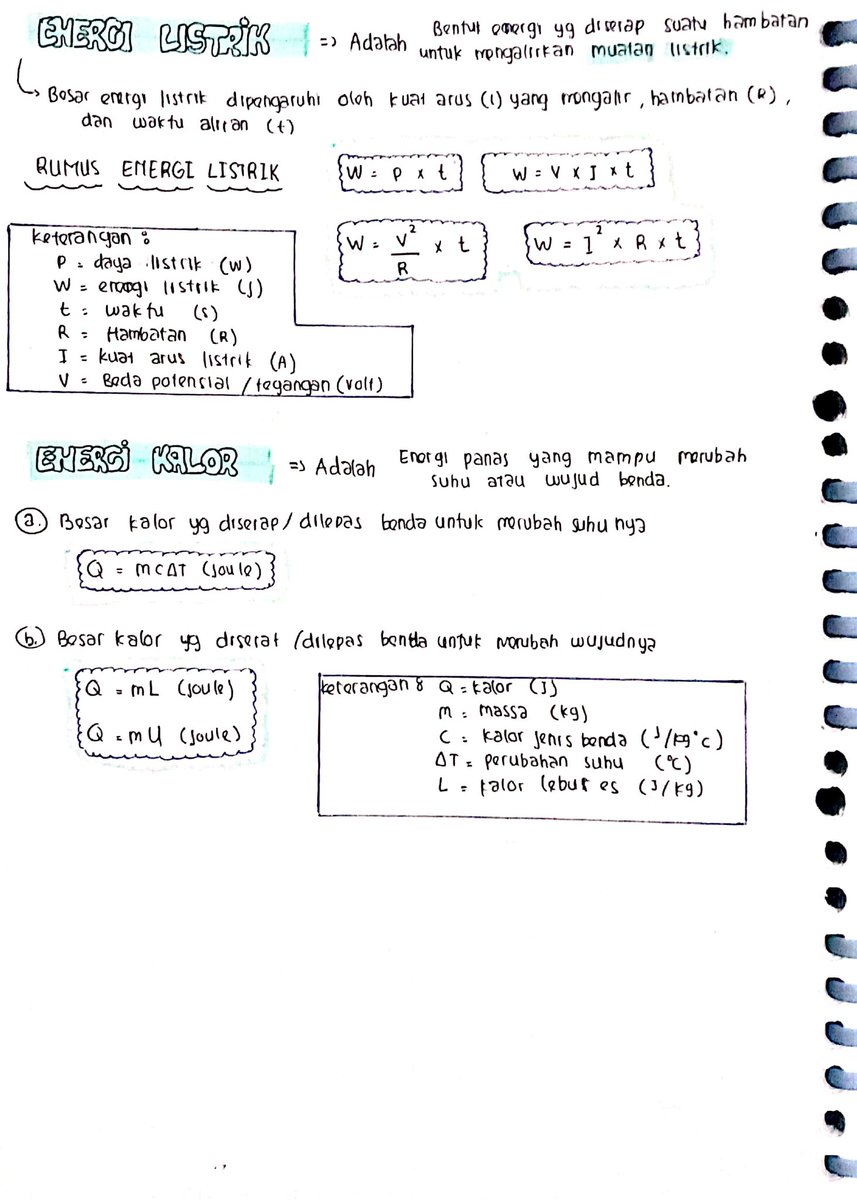 ENERGI LISTRIK => Adalah Bentuk energi yg diserap suatu hambatan
untuk mengalirkan muatan listrik.
↳ Besar energi listrik dipengaruhi oleh kuat arus (I) yang mengalir, hambatan (R),
dan waktu aliran (t)
RUMUS ENERGI LISTRIK
W = P x t
W = V x I x t
W = V²/R x t
W = I² x R x t
Keterangan :
P = daya listrik (W)
W = energi listrik (J)
t = waktu (s)
R = Hambatan (R)
I = kuat arus listrik (A)
V = Beda potensial / tegangan (volt)
ENERGI KALOR => Adalah Energi panas yang mampu merubah
suhu atau wujud benda.
a. Besar kalor yg diserap/dilepas benda untuk merubah suhu nya
Q = mcΔT (joule)
b. Besar kalor yg diserat /dilepas benda untuk merubah wujudnya
Q = mL (joule)
Q = mU (joule)
keterangan : Q = kalor (J)
m = massa (kg)
C = kalor jenis benda (J/kg°C)
ΔT = perubahan suhu (°C)
L = kalor lebur es (J/kg)